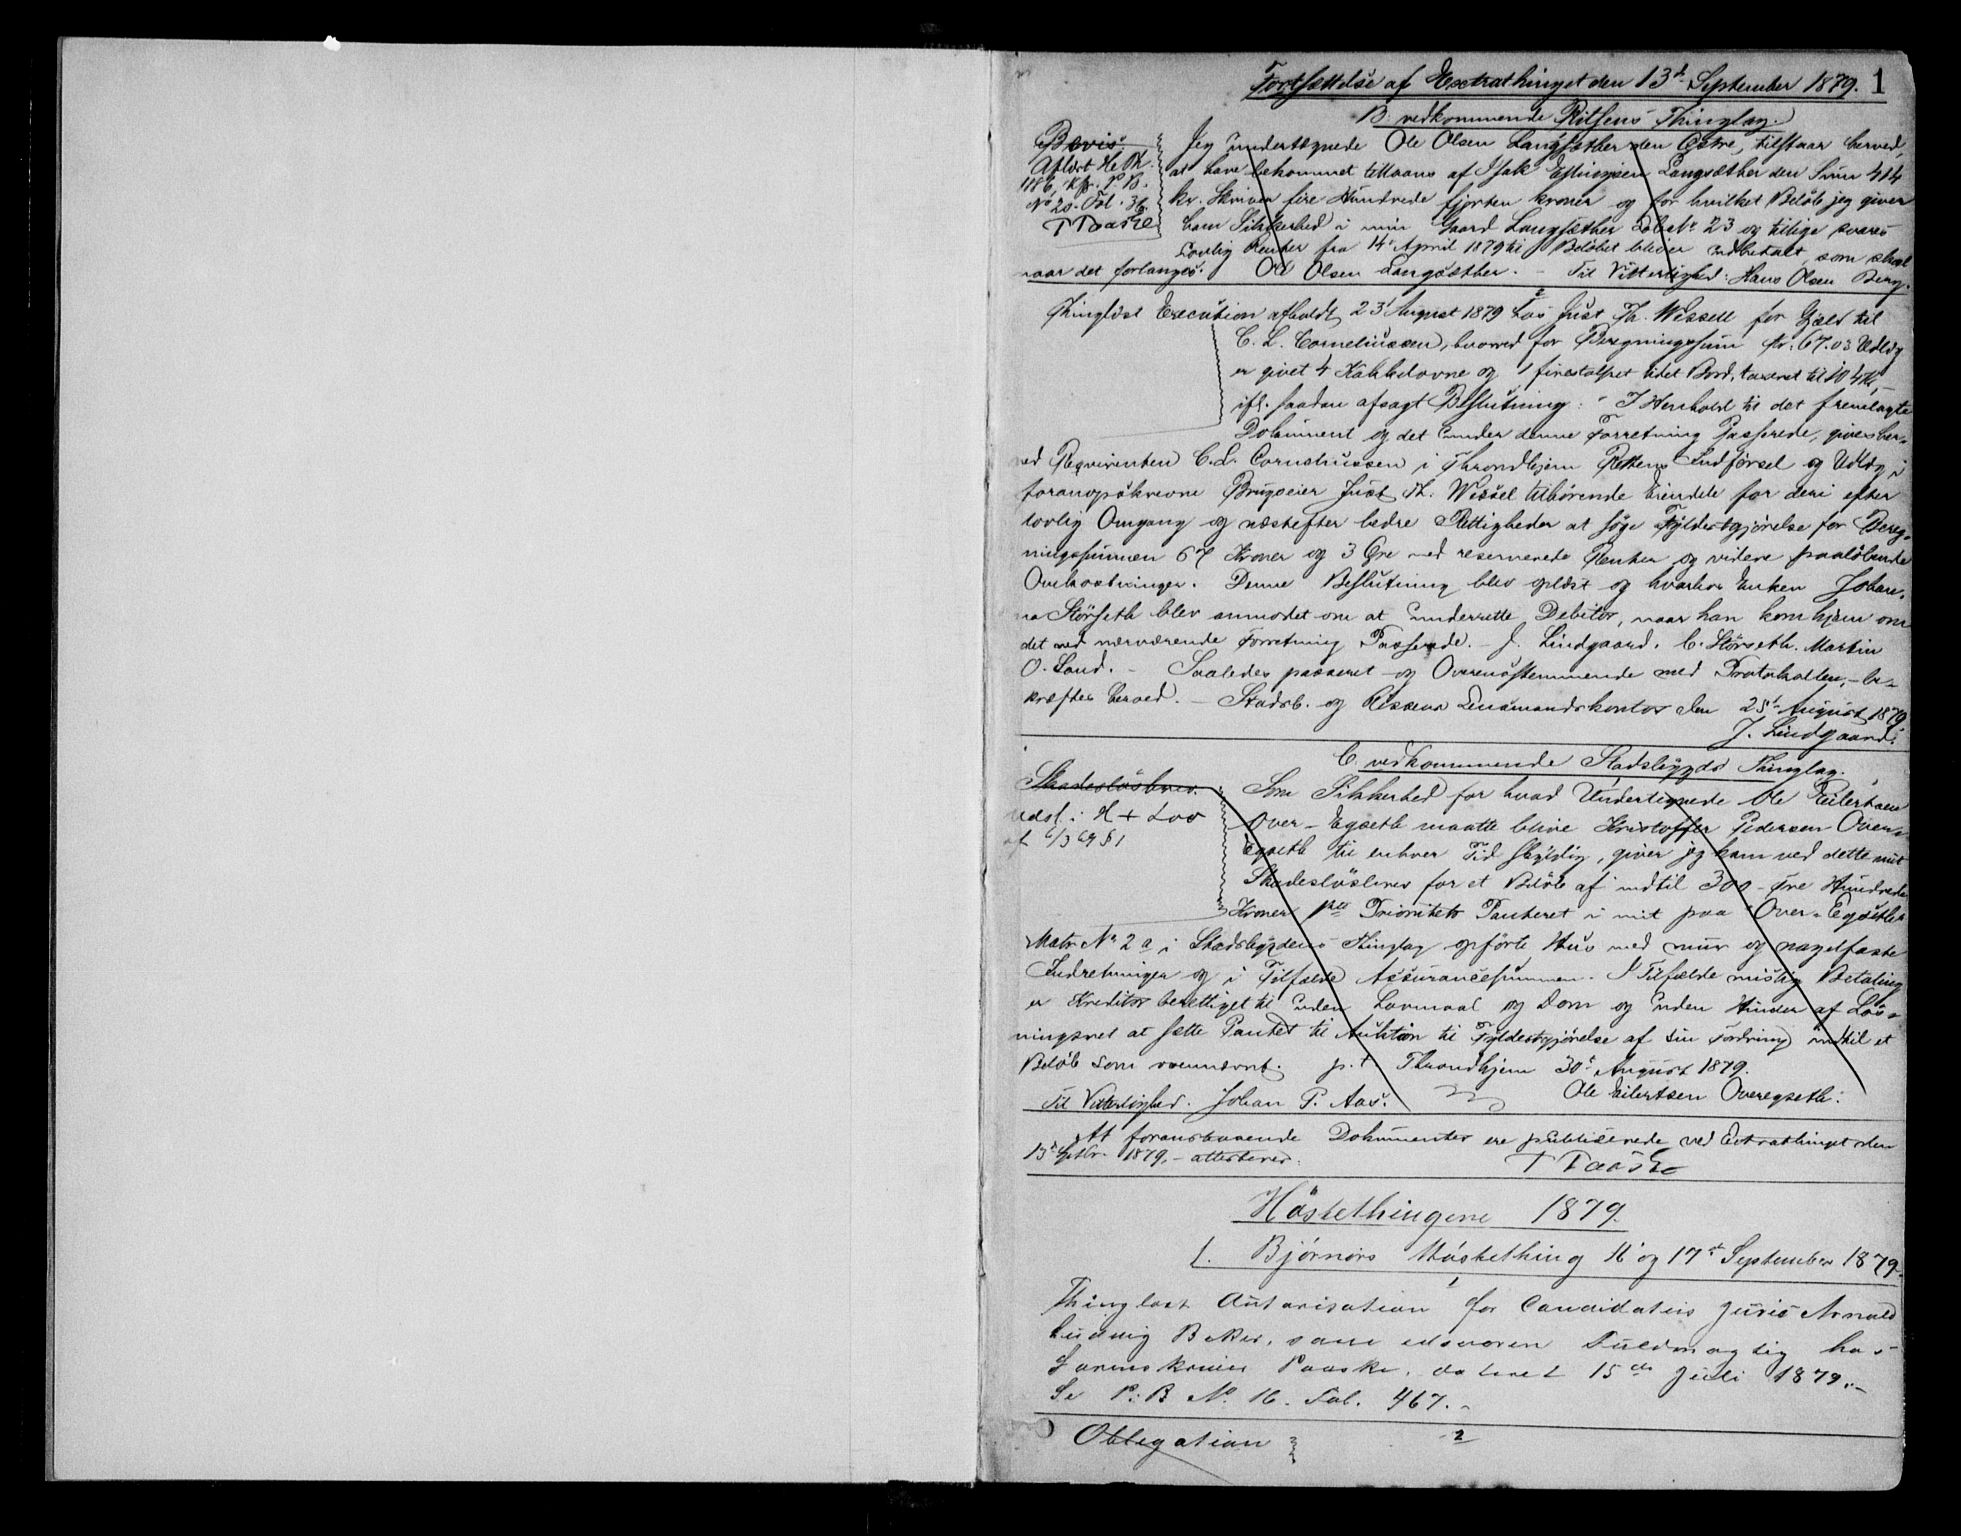 Fortsættelse af Extrathinget den 13de September 1879. 1
B. vedkommende Ritsens Thinglag.
Bevis.
Aflæst
No 20. Fol. 36.
T Paaske
Jeg Undertegnede Ole Olsen Langsæther den Østre, tilstaar herved,
at have bekommet tillaans af Isak Langsæther den Sum 414
kr. Skriver fire Hundrede fjorten kroner og for hvilket Beløb jeg giver
ham Sikkerhed i min Gaard Langsæther Løbe No 23 og tillige svares
Lovlig Renter fra 14de April 1879 til Beløbet bliver indbetalt, som skal
naar det forlanges. Ole Olsen Langsæther. – Til Vitterlighed: Hans Olsen Berg.
2
Thinglæst Execution afholdt 23de August 1879 hos Just Th. Wessel for Gjæld til
C. L. Corneliussen, hvorved for Beregningssum Kr. 67.03 Udlæg
er givet 4 Kakkelovne og 1 firestolpet lidet Bord, taxeret til 104 Kr,
ifl. saadan afsagt Beslutning: "I Henhold til det fremlagte
Dokument og det under denne Forretning Passerede, gives her-
ved Reqvirenten C. L. Corneliussen i Throndhjem Rettens Indførsel og Udlæg i
foranopskrevne Brugseier Just Th. Wessel tilhørende Eiendele for deri efter
lovlig Omgang og næstefter bedre Rettigheder at søge Fyldestgjørelse for Bereg-
ningssummen 67 Kroner og 3 Øre med reserverede Renter og videre paaløbende
Omkostninger. Denne Beslutning blev oplæst og hvorhos Enken Johan-
na Størseth blev anmodet om at underrette Debitor, naar han kom hjem om
det ved nærværende Forretning Passerede. – J. Lindgaard. C. Størseth. Martin
O. Sand. – Saaledes passeret og Overensstemmende med Protokollen, – be-
kræftes herved. – Stadsb. og Rissens Lensmandskontor den 25de August 1879
J. Lindgaard.
C. vedkommende Stadsbygds Thinglag.
Skadesløsbrev.
udsl. i H + Lov
af 6/3 69 § 1
Som Sikkerhed for hvad Undertegnede Ole Eilertsen
Over-Egseth maatte blive Kristoffer Pedersen Over-
Egseth til enhver Tid skyldig, giver jeg ham ved dette mit
Skadesløsbrev for et Beløb af indtil 300 – Tre Hundrede
Kroner 1ste Prioritets Panteret i mit paa Over-Egseth
Matr No 2 a i Stadsbygdens Thinglag opførte Hus med mur og nagelfaste
Indretninger og i Tilfælde Assurancesummen. I Tilfælde mislig Betaling
er Kreditor berettiget til uden Lovmaal og Dom og uden Hinder af Løs-
ningsret at sætte Pantet til Auktion til Fyldestgjørelse af sin Fordring indtil et
Beløb som ovennævnt. p. t. Throndhjem 30te August 1879.
Ole Eilertsen Overegseth.
Til Vitterlighed. Johan P. Aas.
At foranstaaende Dokumenter ere publicerede ved Extrathinget den
13de Septbr. 1879, – attesterer.
T Paaske
Høstethingene 1879.
1. Bjørnørs Høstething 16 og 17de September 1879.
1
Thinglæst Autorisation for Candidatus juris Arnold
Ludvig Beker, som edsvoren Fuldmægtig hos
Sorenskriver Paaske, dateret 15de Juli 1879. –
Se P: B No. 16. Fol. 467. –
Obligation
2